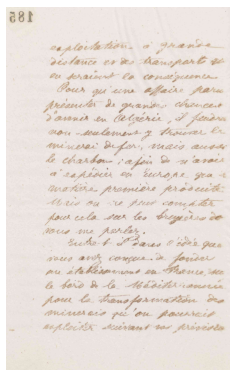 185
exploitation à grande
distance et des transports et
en seraient la conséquence
Pour qu'une affaire para
présenter de grandes chances
d'avenir en Algérie, il faudrait
non seulement y trouver le
minerai de fer, mais aussi
le charbon; afin de n'avoir
à expédier en Europe que
matière première
Mais on ne peut compter
pour cela sur les bruyères de
vous me parlez.
Quant l'idée que
vous avez conçue de fonder
un établissement en France, sur
le bord de la Méditerranée
pour la transformation des
minerais qu'on pourrait
exploiter suivant vos prévisions